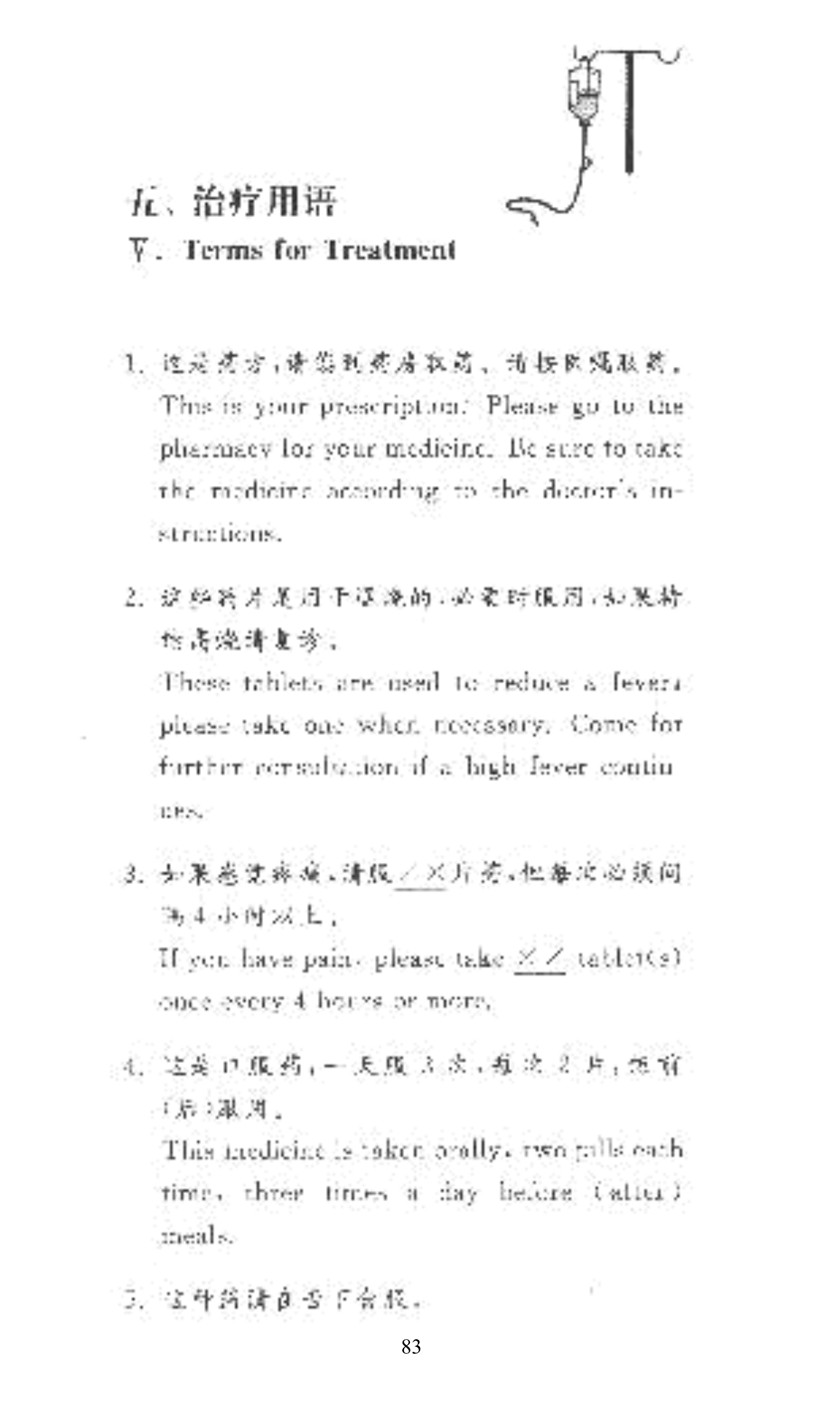 五、治疗用语
Ⅴ. Terms for Treatment
1. 这是药方,请您到药房取药。请按医嘱服药。
This is your prescription. Please go to the
pharmacy for your medicine. Be sure to take
the medicine according to the doctor's in-
structions.
2. 这些药片是用于退烧的,必要时服用,如果持
续高烧请复诊。
These tablets are used to reduce a fever;
please take one when necessary. Come for
further consultation if a high fever contin-
ues.
3. 如果感觉疼痛,请服 / × 片药,但每次必须间
隔 4 小时以上。
If you have pain, please take × / tablet(s)
once every 4 hours or more.
4. 这是口服药,一天服 3 次,每次 2 片,饭前
(后)服用。
This medicine is taken orally, two pills each
time, three times a day before (after)
meals.
5. 这种药请在舌下含服。
83